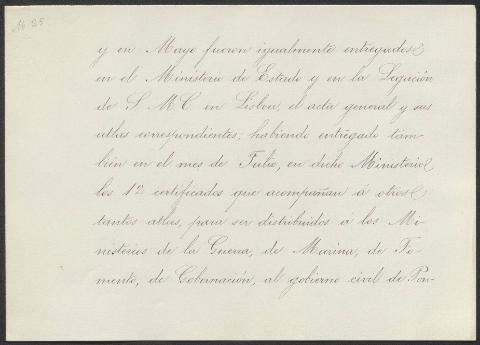 Nº 25
y en Mayo fueron igualmente entregados
en el Ministerio de Estado y en la Legación
de S. M. C. en Lisboa, el acta general y sus
atlas correspondientes; habiendo entregado tam-
bién en el mes de Julio, en dicho Ministerio
los 12 certificados que acompañan á otros
tantos atlas, para ser distribuidos á los Mi-
nisterios de la Guerra, de Marina, de Fo-
mento, de Gobernación, al gobierno civil de Pon-